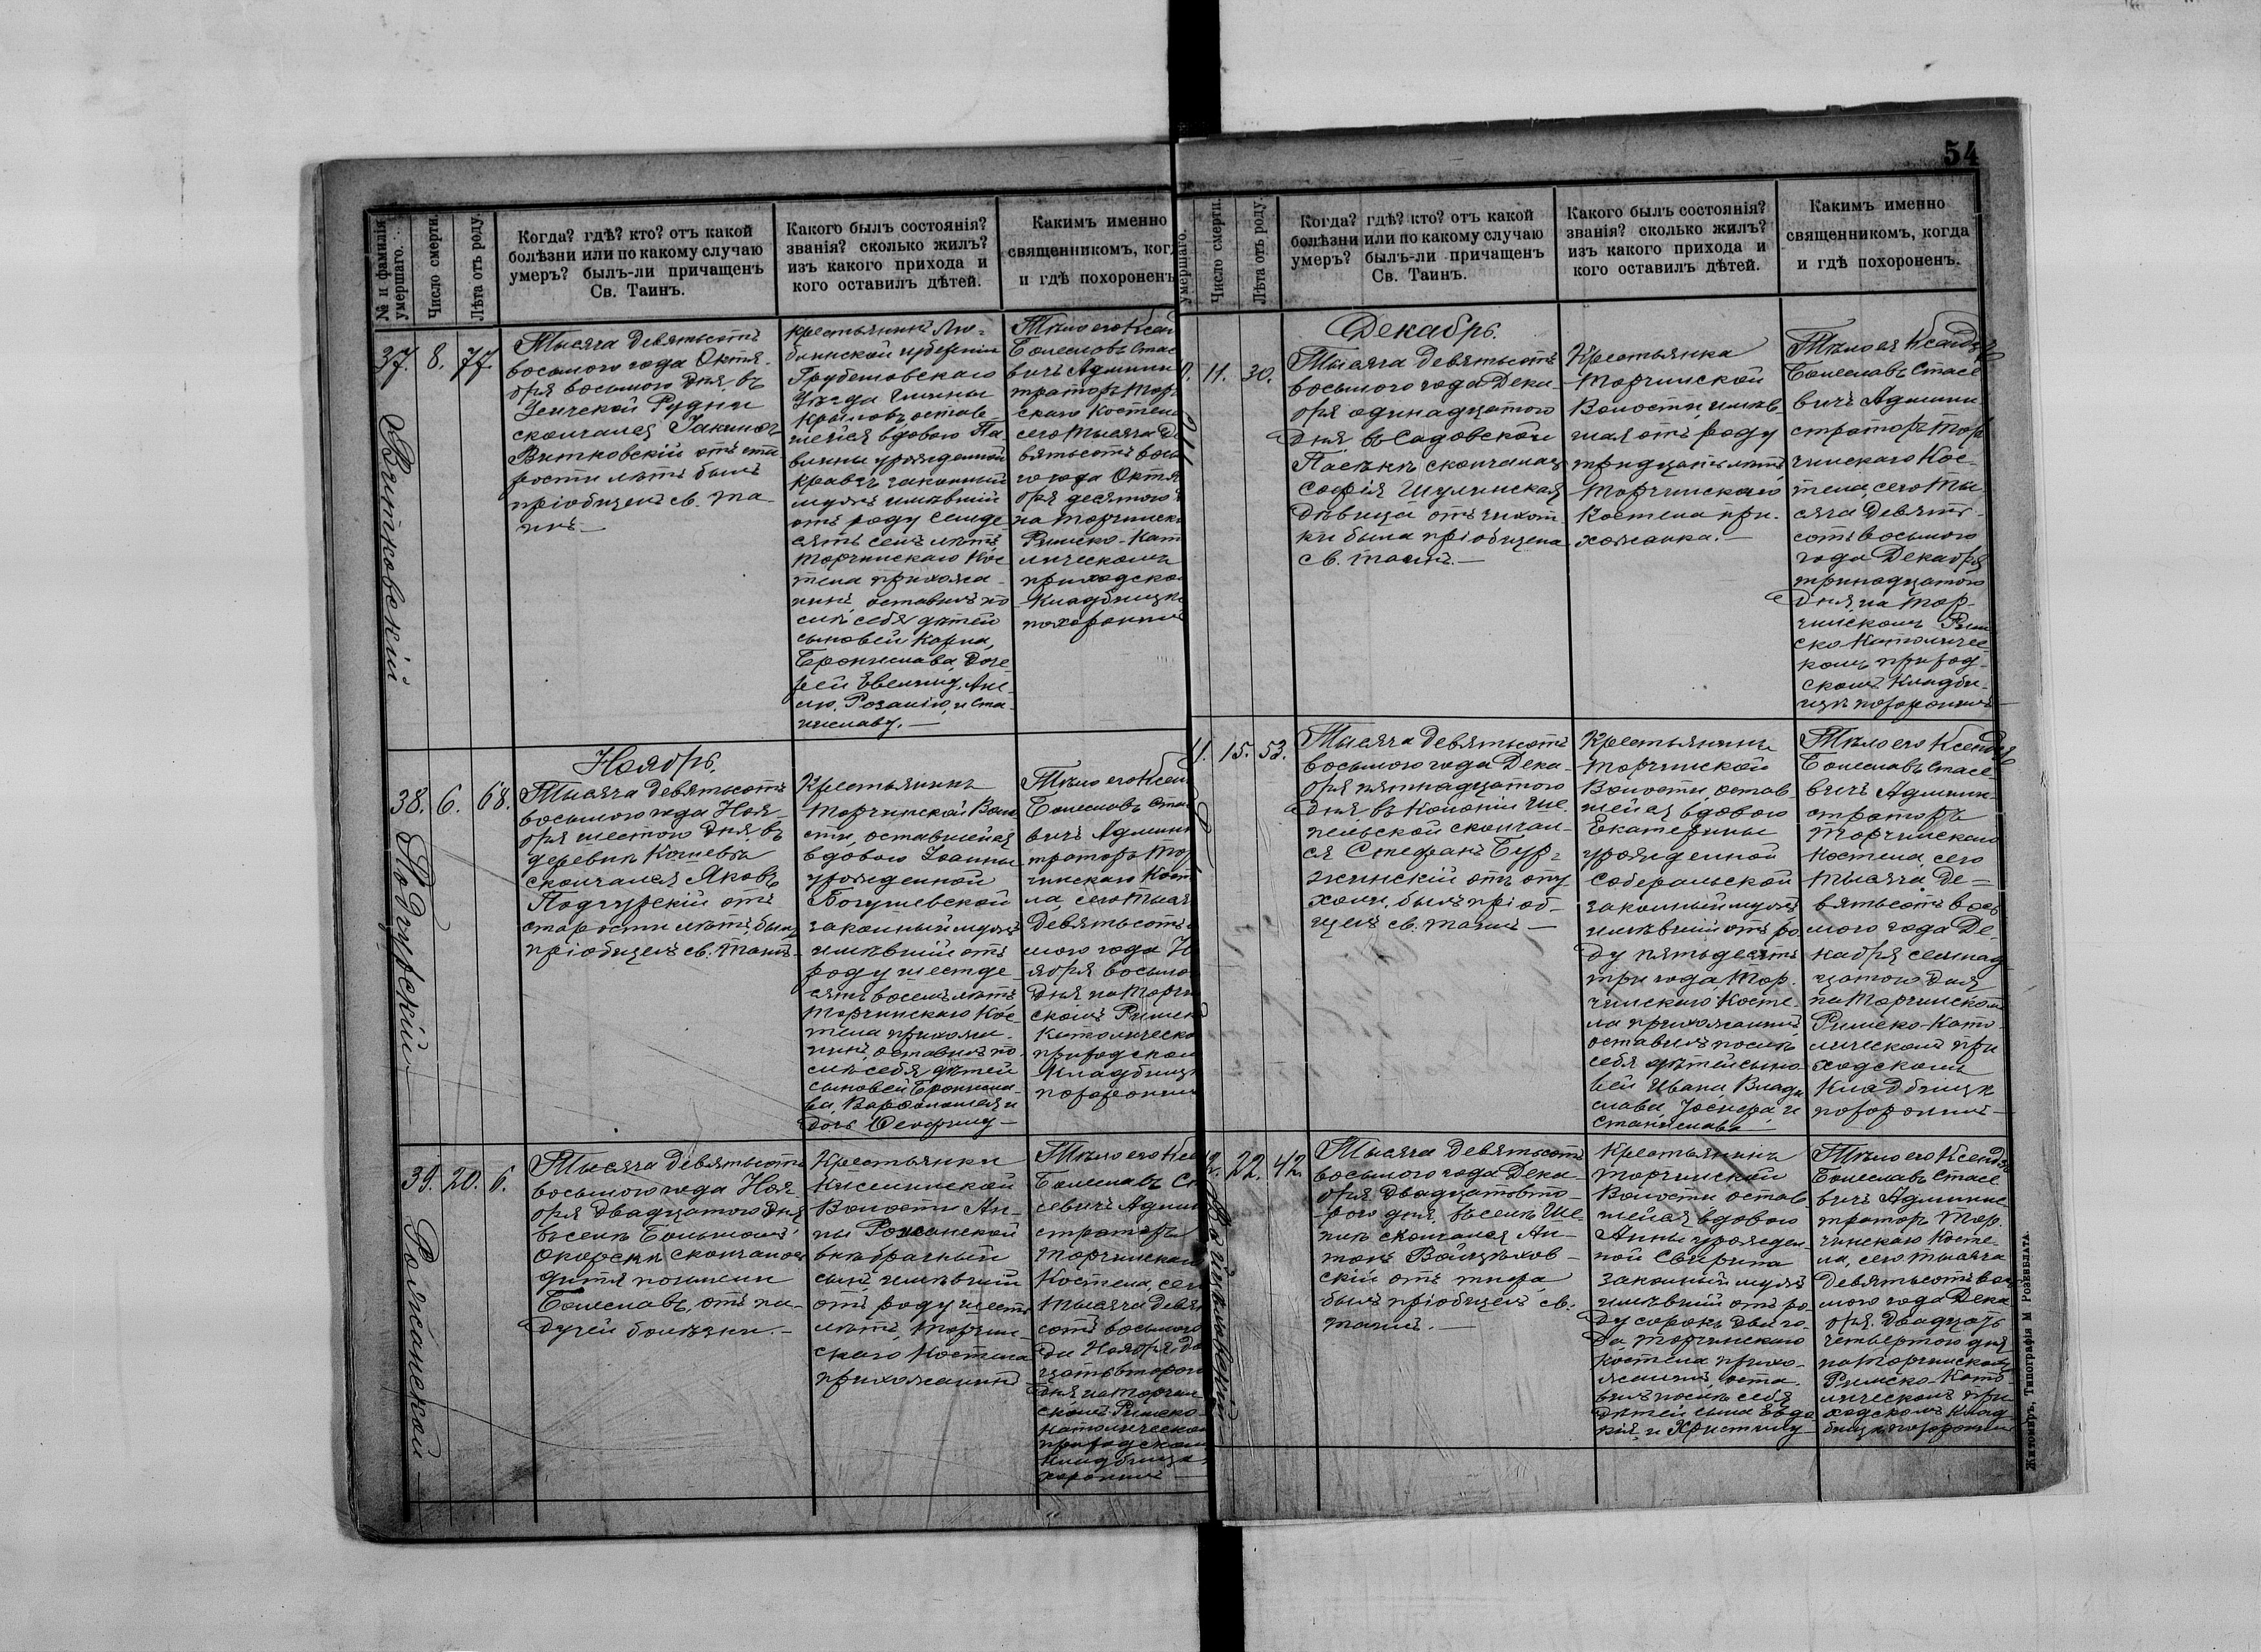 54
№ и фамилія умершаго.
Число смерти.
Лѣта отъ роду.
Когда? гдѣ? кто? отъ какой
болѣзни или по какому случаю
умеръ? былъ-ли причащенъ
Св. Таинъ.
Какого былъ состоянія?
званія? сколько жилъ?
изъ какого прихода и
кого оставилъ дѣтей.
Каким именно
священникомъ, ког
и гдѣ похороненъ
37.
Витковскій
8.
77.
Тысяча девятьсотъ
восьмого года Октя-
бря восьмого дня, въ
Рудни
скончался
Витковскій отъ ста
рости лѣтъ былъ
пріобщенъ св. та-
инъ.—
крестьянинъ Лю-
блинской губерніи
Грубешовскаго
Уѣзда гмины
Крыловъ, остав-
шейся вдовою Па-
влины урожденной
Кравчъ законный
мужъ имѣвшій
отъ роду семьде-
сятъ семь лѣтъ
Торчинскаго Кос
тела прихожа-
нинъ, оставилъ по
слѣ себя дѣтей
сыновей Карла,
Бронислава, доче
рей Евелину, Ане-
лю, Розалію, и Ста-
ниславу.—
Тѣло его Ксен
Болеславъ Стас
вичъ Админи
траторъ Тор
скаго Косте
сего тысяча де
вятьсотъ вось
го года Октя
бря десятого
на Торчинск
Римско-Кат
лическомъ
приходско
Кладбищѣ
похоронил
Ноябрь.
38.
Подгурскій
6.
68.
Тысяча девятьсотъ
восьмого года Ноя-
бря шестого дня, въ
деревнѣ Кошевъ
скончался Яковъ
Подгурскій отъ
старости лѣтъ, былъ
пріобщенъ св. таинъ—
Крестьянинъ
Торчинской Воло
сти, оставшейся
вдовою Іоанны
урожденной
Богушевской
законный мужъ
имѣвшій отъ
роду шестьде-
сятъ восемь лѣтъ
Торчинскаго Кос-
тела прихожа-
нинъ, оставилъ по-
слѣ себя дѣтей
сыновей Бронисла-
ва, Варфоломея и
дочь
Тѣло его Ксен
Болеславъ Ста
вичъ Админи
траторъ Тор
чинскаго Кост
ла, сего тысяч
девятьсотъ
мого года Но
ября восьмо
дня на Торчи
скомъ Римск
Католическо
приходском
Кладбищ
похоронил
39.
Рожанской
20.
6.
Тысяча девятьсотъ
восьмого года Ноя-
бря двадцатого дня
въ селѣ Большомъ
Окорскѣ скончалось
дитя по имени
Болеславъ, отъ па-
дучей болѣзни.—
Крестьянки
Киселинской
Волости Ан-
ны Рожанской
внѣбрачный
сынъ, имѣвшій
отъ роду шесть
лѣтъ, Торчин-
скаго Костела
прихожанинъ
Тѣло его Ксе
Болеславъ Ст
севичъ Админ
страторъ
Торчинскаго
Костела, сего
тысяча девя
сотъ восьмого
да Ноября, два
цать второго
дня, на Торчин
скомъ Римско-
католическом
приходском
Кладбищѣ
хоронил—
умершаго.
Число смерти.
Лѣта отъ роду.
Когда? гдѣ? кто? отъ какой
болѣзни или по какому случаю
умеръ? былъ-ли причащенъ
Св. Таинъ.
Какого былъ состоянія?
званія? сколько жилъ?
изъ какого прихода и
кого оставилъ дѣтей.
Какимъ именно
священникомъ, когда
и гдѣ похороненъ.
Декабрь.
11.
30.
Тысяча девятьсотъ
восьмого года Дека-
бря одинадцатого
дня, въ Садовской
Пасѣкѣ скончалась
Софія Шулинская
дѣвица отъ чахот
ки была пріобщена
св. таинъ.—
Крестьянка
Торчинской
Волости, имѣв
шая отъ роду
тридцать лѣтъ
Торчинскаго
Костела при-
хожанка.—
Тѣло ея Ксендзъ
Болеславъ Стасе
вичъ Админи
страторъ Тор
чинскаго Кос-
тела, сего ты-
сяча девять-
сотъ восьмого
года Декабря
тринадцатого
дня, на Тор-
чинскомъ Рим
ско Католичес
комъ приход-
скомъ Кладби-
щѣ похоронилъ—
15.
53.
Тысяча девятьсотъ
восьмого года Дека-
бря пятнадцатого
дня въ Колоніи Ше-
пельской скончал-
ся Стефанъ Бур-
жинскій отъ опу
холи, былъ пріоб-
щенъ св. таинъ—
Крестьянинъ
Торчинской
Волости, остав-
шейся вдовою
Екатерины
урожденной
законный мужъ
имѣвшій отъ ро
ду пятьдесятъ
три года, Тор-
чинскаго Косте-
ла прихожанинъ,
оставилъ послѣ
себя дѣтей сыно-
вей Ивана, Влади
слава, Іосифа, и
Станислава—
Тѣло его Ксендзъ
Болеславъ Стасе-
вичъ Админи-
страторъ
Торчинскаго
Костела, сего
тысяча де-
вятьсотъ вось
мого года Де-
кабря семнад
цатого дня
на Торчинском
Римско-Като-
лическомъ при
ходскомъ
Кладбищѣ
похоронилъ—
Войцѣховскій
22.
42.
Тысяча девятьсотъ
восьмого года Дека-
бря двадцать вто-
рого дня, въ селѣ Ше-
пелѣ скончался Ан-
тонъ Войцѣхов-
скій отъ тифа,
былъ пріобщенъ св.
таинъ.—
Крестьянинъ
Торчинской
Волости остав-
шейся вдовою
Анны урожден-
ной Свирита
законный мужъ
имѣвшій отъ ро-
ду сорокъ два го-
да, Торчинскаго
Костела прихо-
жанинъ, оста-
вилъ послѣ себя
дѣтей
и Христину—
Тѣло его Ксендзъ
Болеславъ Стасе
вичъ Админис-
траторъ Тор-
чинскаго Косте-
ла, сего тысяча
девятьсотъ вось
мого года Дека
бря двадцать
четвертого дня
на Торчинскомъ
Римско-Като-
лическомъ при
ходскомъ Клад-
бищѣ похоронилъ
Житомиръ, Типографія М Розенблата.